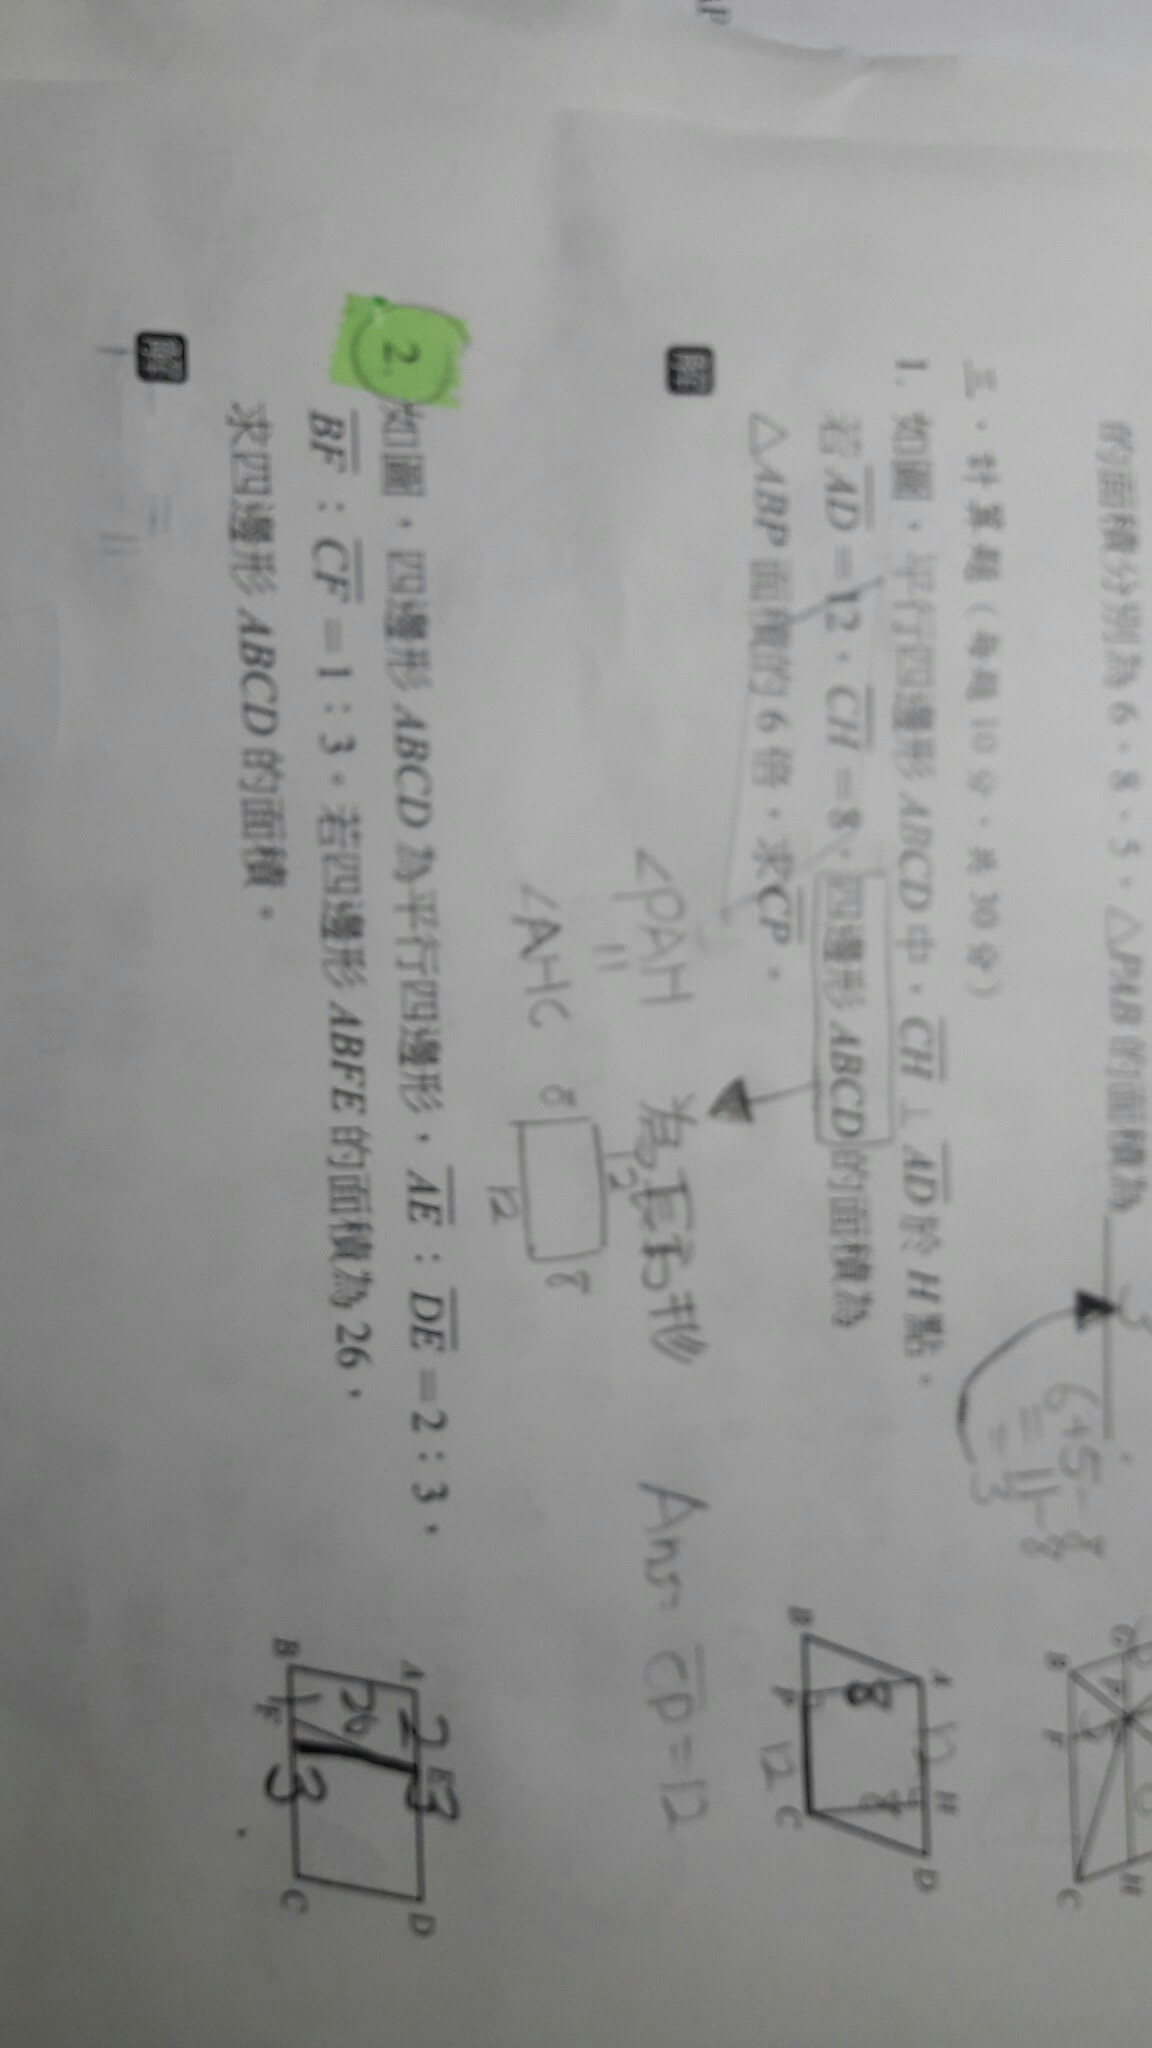 的面積分別為 6、8、5，△PAB 的面積為 3 。
6+5-8
=11-8
=3
三、計算題（每題 10 分，共 30 分）
1. 如圖，平行四邊形 ABCD 中，CH⊥AD 於 H 點。
若 AD=12，CH=8，四邊形 ABCD 的面積為
△ABP 面積的 6 倍，求 CP。
解
∠PAH
=
∠AHC
為長方形
12
8
8
12
Ans= CP=12
A
12
H
D
8
8
B
P
12
C
2. 如圖，四邊形 ABCD 為平行四邊形，AE：DE=2：3，
BF：CF=1：3。若四邊形 ABFE 的面積為 26，
求四邊形 ABCD 的面積。
解
A
2
E
3
D
26
B
1
F
3
C
G
D
B
F
C
H
AP